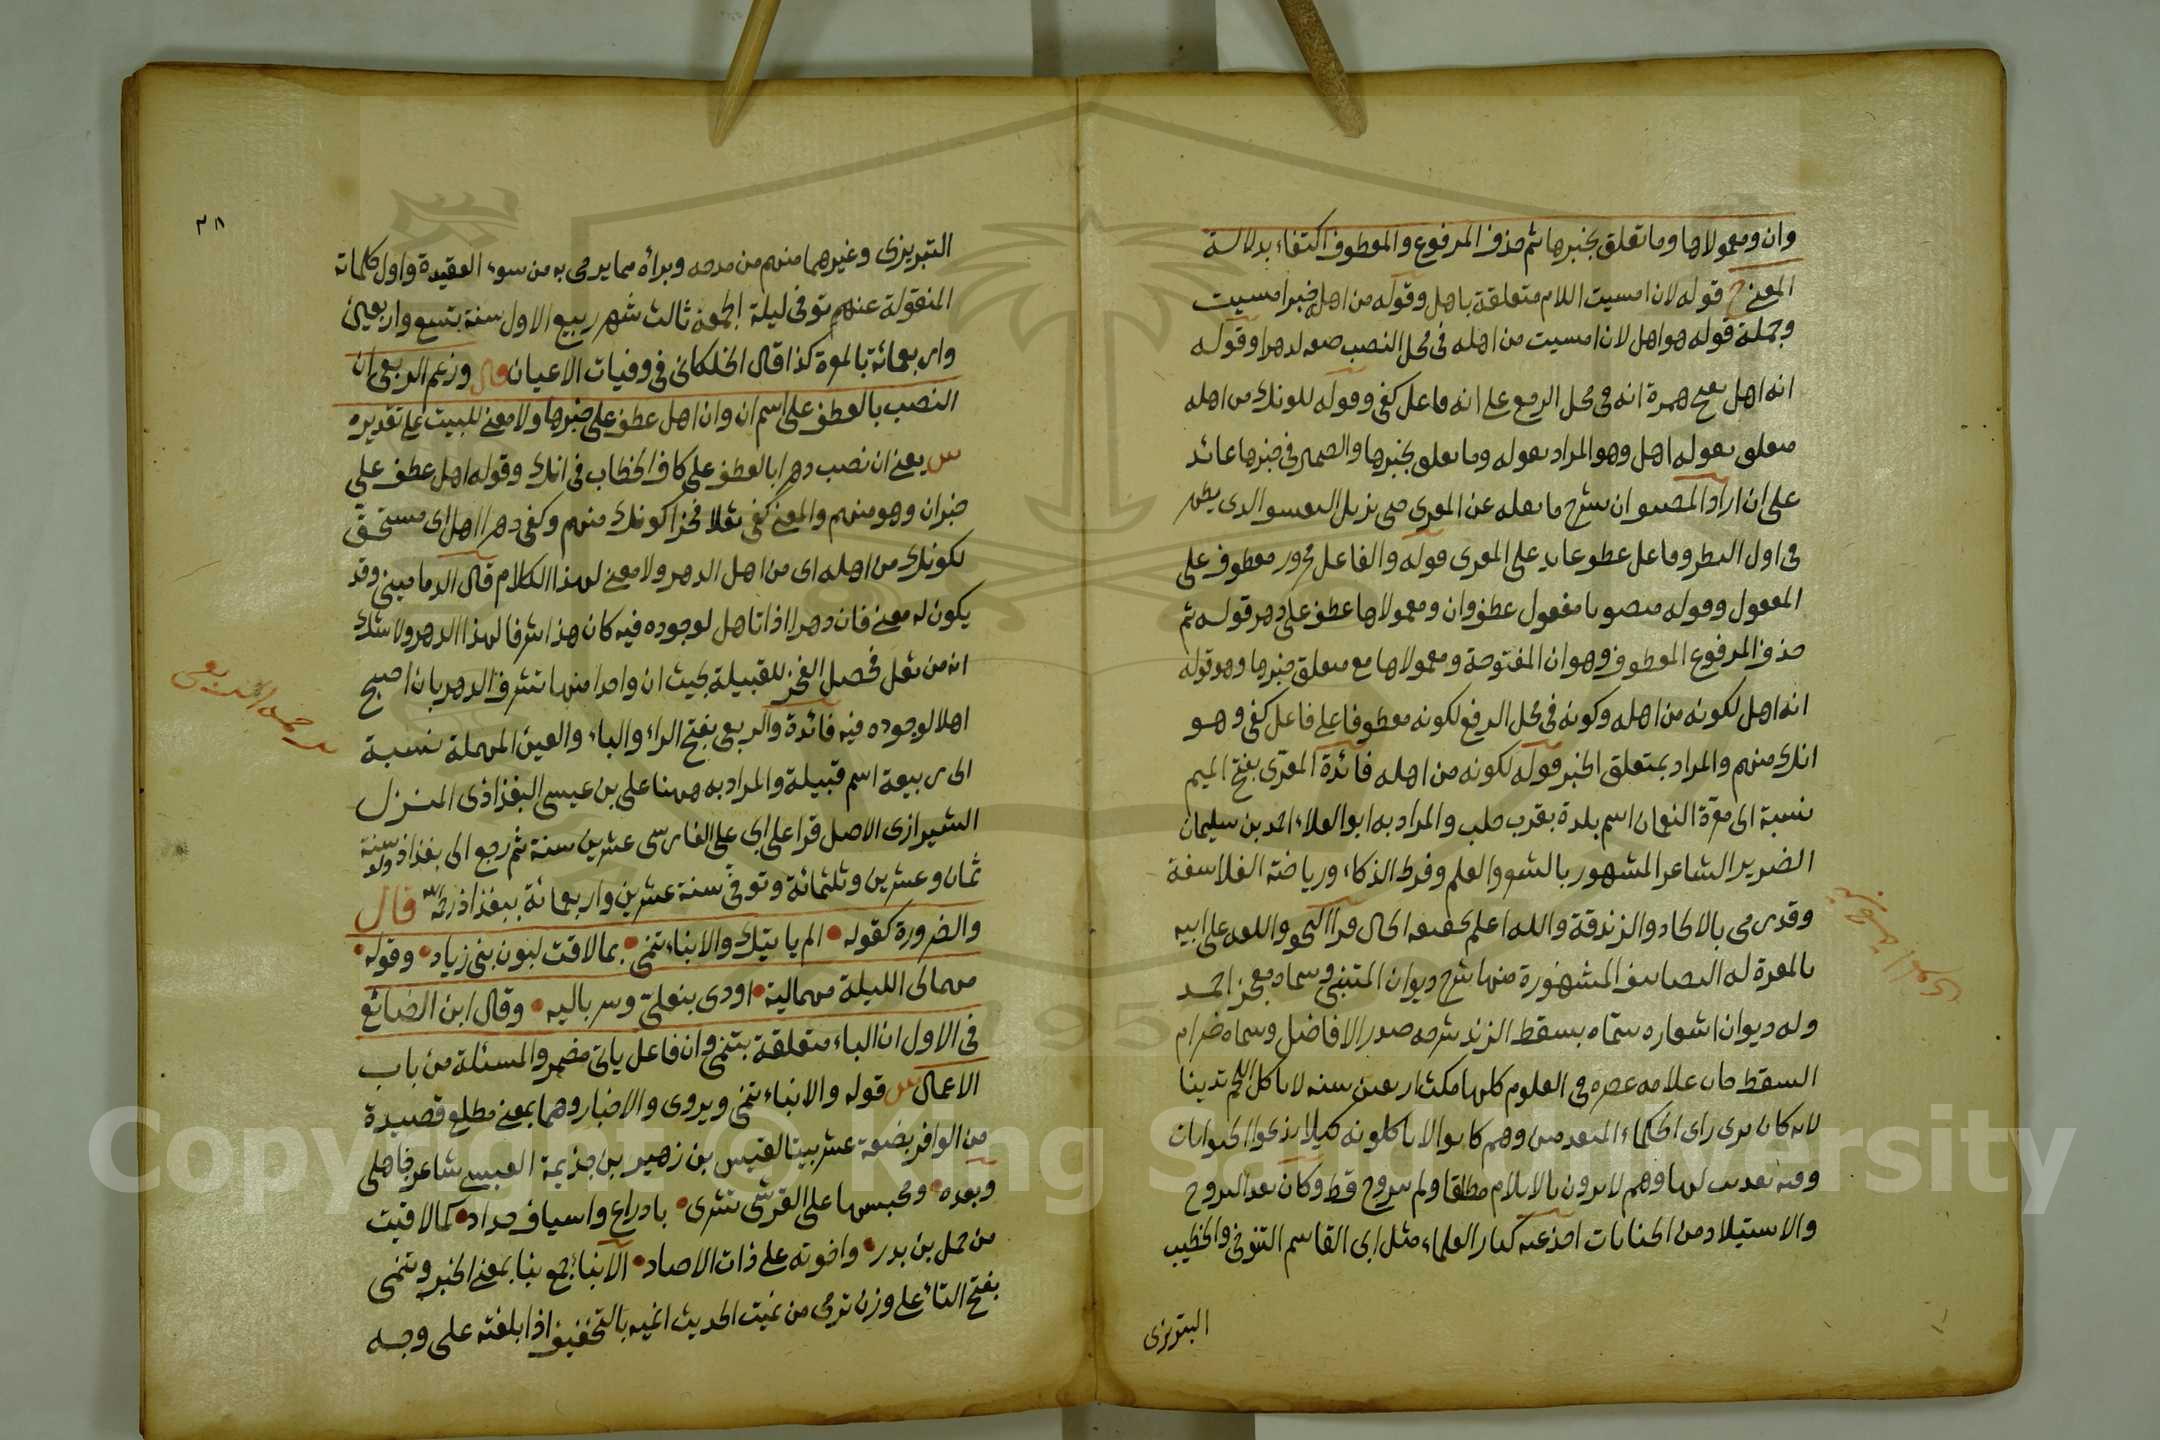 وان ومعمولاها وما تعلق بخبرها ثم حذف المرفوع والمعطوف اكتفاء بدلالة
المعنى قوله لان امسيت اللام متعلقة باهل وقوله من اهله خبر امسيت
وجملة قوله هو اهل لان امسيت من اهله في محل النصب صفه لدهرا وقوله
انه اهل بفتح همزة انه في محل الرفع على انه فاعل كفى وقوله لكونك من اهله
متعلق بقوله اهل وهو المراد بقوله وما تعلق بخبرها والضمير في خبرها عائد
على ان اراد المصنف ان يشرح ما نقله عن المعري حتى يزيل التعسف الذي يظهر
في اول النظر وفاعل عطف عايد على المعري قوله والفاعل مجرور معطوف على
المفعول وقوله منصوبا مفعول عطف وان ومعمولاها عطف على دهر قوله ثم
حذف المرفوع المعطوف وهو ان المفتوحة ومعمولاها مع متعلق خبرها وهو قوله
انه اهل لكونه من اهله وكونه في محل الرفع لكونه معطوفا على فاعل كفى وهو
انك منهم والمراد بمتعلق الخبر قوله لكونه من اهله فائدة المعري بفتح الميم
نسبة الى معرة النعمان اسم بلدة بقرب حلب والمراد به ابو العلاء احمد بن سليمان
الضرير الشاعر المشهور بالشعر والعلم وفرط الذكاء ورياضة الفلاسفة
وقد رمي بالالحاد والزندقة والله اعلم بحقيقة الحال قرا النحو واللغه على ابيه
بالمعرة له التصانيف المشهورة منها شرح ديوان المتنبي وسماه معجز احمد
وله ديوان اشعاره سماه بسقط الزند شرحه صدر الافاضل وسماه ضرام
السقط كان علامه عصره في العلوم كلها مكث اربعين سنه لا ياكل اللحم تدينا
لانه كان يرى راى الحكماء المتقدمين وهم كانوا لا ياكلونه كيلا يذبحوا الحيوانات
وفيه تعذيب لها وهم لا يرون بالايلام مطلقا ولم يتزوج قط وكان يعد التزوج
والاستيلاد من الجنايات اخذ عنه كبار العلماء مثل ابي القاسم التنوخي والخطيب
التبريزى
٣٨
التبريزى وغيرهما منهم من مدحه وبرأه مما يرمى به من سوء العقيدة واول كلماته
المنقولة عنهم توفى ليلة الجمعة ثالث شهر ربيع الاول سنة تسع واربعين
واربعمائة بالمعرة كذا قال الخلكانى في وفيات الاعيان قال وزعم الربعى ان
النصب بالعطف على اسم ان وان اهل عطف على خبرها ولا معنى للبيت على تقديره
س يعنى ان نصب دهرا بالعطف على كاف الخطاب في انك وقوله اهل عطف على
خبر ان وهو منهم والمعنى كفى ثعلا فخرا كونك منهم وكفى دهرا اهل اى مستحق
لكونك من اهله اى من اهل الدهر ولا معنى لهذا الكلام قال الدمامينى وقد
يكون له معنى فان دهرا اذا تاهل لوجوده فيه كان هذا شرفا لهذا الدهر ولا شك
انه من ثعل فحصل الفخر للقبيلة بحيث ان واحدا منها تشرف الدهر بان اصبح
اهلا لوجوده فيه فائدة والربعى بفتح الراء والباء والعين المهملة نسبة
الى ربيعة اسم قبيلة والمراد به ههنا على بن عيسى البغذاذى المنزل
الشيرازى الاصل قرا على ابى على الفارسى عشرين سنة ثم رجع الى بغذاذ ولد سنة
ثمان وعشرين وثلثمائة وتوفى سنة عشرين واربعمائة ببغذاذ رحمه الله قال
والضرورة كقوله الم ياتيك والانباء تنمى بما لاقت لبون بنى زياد وقوله
مهما لى الليلة مهما ليه اودى بنعلى وسرباليه وقال ابن الضائع
في الاول ان الباء متعلقة بتنمى وان فاعل ياتى مضمر والمسئلة من باب
الاعمال س قوله والانباء تنمى ويروى والاخبار وهما بمعنى مطلع قصيدة
من الوافر بضعة عشر بيتا لقيس بن زهير بن جذيمة العبسى شاعر جاهلى
وبعده ومحبسها على القرشى تشرى بادراع واسياف حداد كما لاقيت
من حمل بن بدر واخوته على ذات الاصاد الانباء جمع نبا بمعنى الخبر وتنمى
بفتح التاء على وزن ترمى من نميت الحديث انميه بالتخفيف اذا بلغته على وجه
ترجمة الربعى